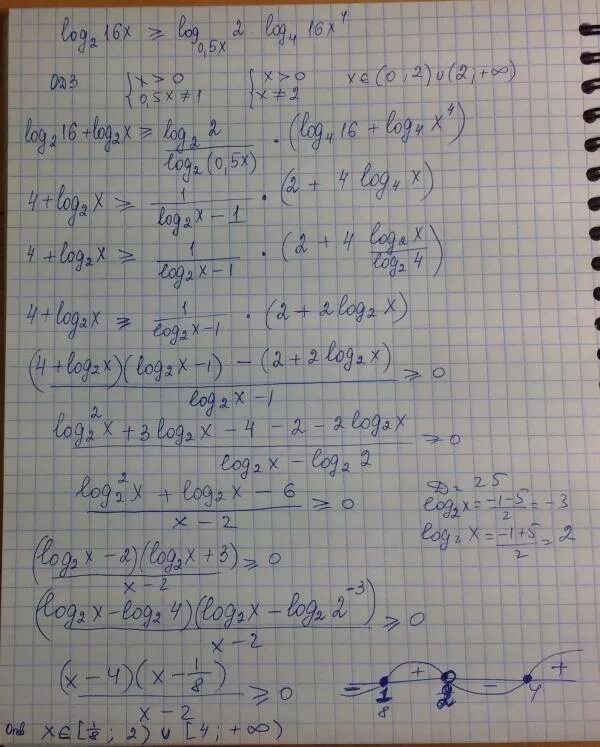 log₂ 16x ≥ log₀,₅ₓ 2 · log₄ 16x⁴
ОДЗ { x > 0 0,5x ≠ 1 { x > 0 x ≠ 2 x ∈ (0 ; 2) ∪ (2 ; +∞)
log₂16 + log₂x ≥ log₂ 2 / log₂(0,5x) · (log₄16 + log₄x⁴)
4 + log₂x ≥ 1 / (log₂x − 1) · (2 + 4 log₄ x)
4 + log₂x ≥ 1 / (log₂x − 1) · (2 + 4 log₂x / log₂4)
4 + log₂x ≥ 1 / (log₂x − 1) · (2 + 2 log₂x)
((4 + log₂x)(log₂x − 1) − (2 + 2 log₂x)) / (log₂x − 1) ≥ 0
(log₂²x + 3 log₂x − 4 − 2 − 2 log₂x) / (log₂x − log₂ 2) ≥ 0
(log₂²x + log₂x − 6) / (x − 2) ≥ 0
D = 25
log₂x = (−1−5) / 2 = −3
log₂ x = (−1+5) / 2 = 2
(log₂x − 2)(log₂x + 3) / (x − 2) ≥ 0
(log₂x − log₂ 4)(log₂x − log₂ 2⁻³) / (x − 2) ≥ 0
(x − 4)(x − 1/8) / (x − 2) ≥ 0
− + − +
1/8 2 4
Отв x ∈ [1/8 ; 2) ∪ [4 ; +∞)